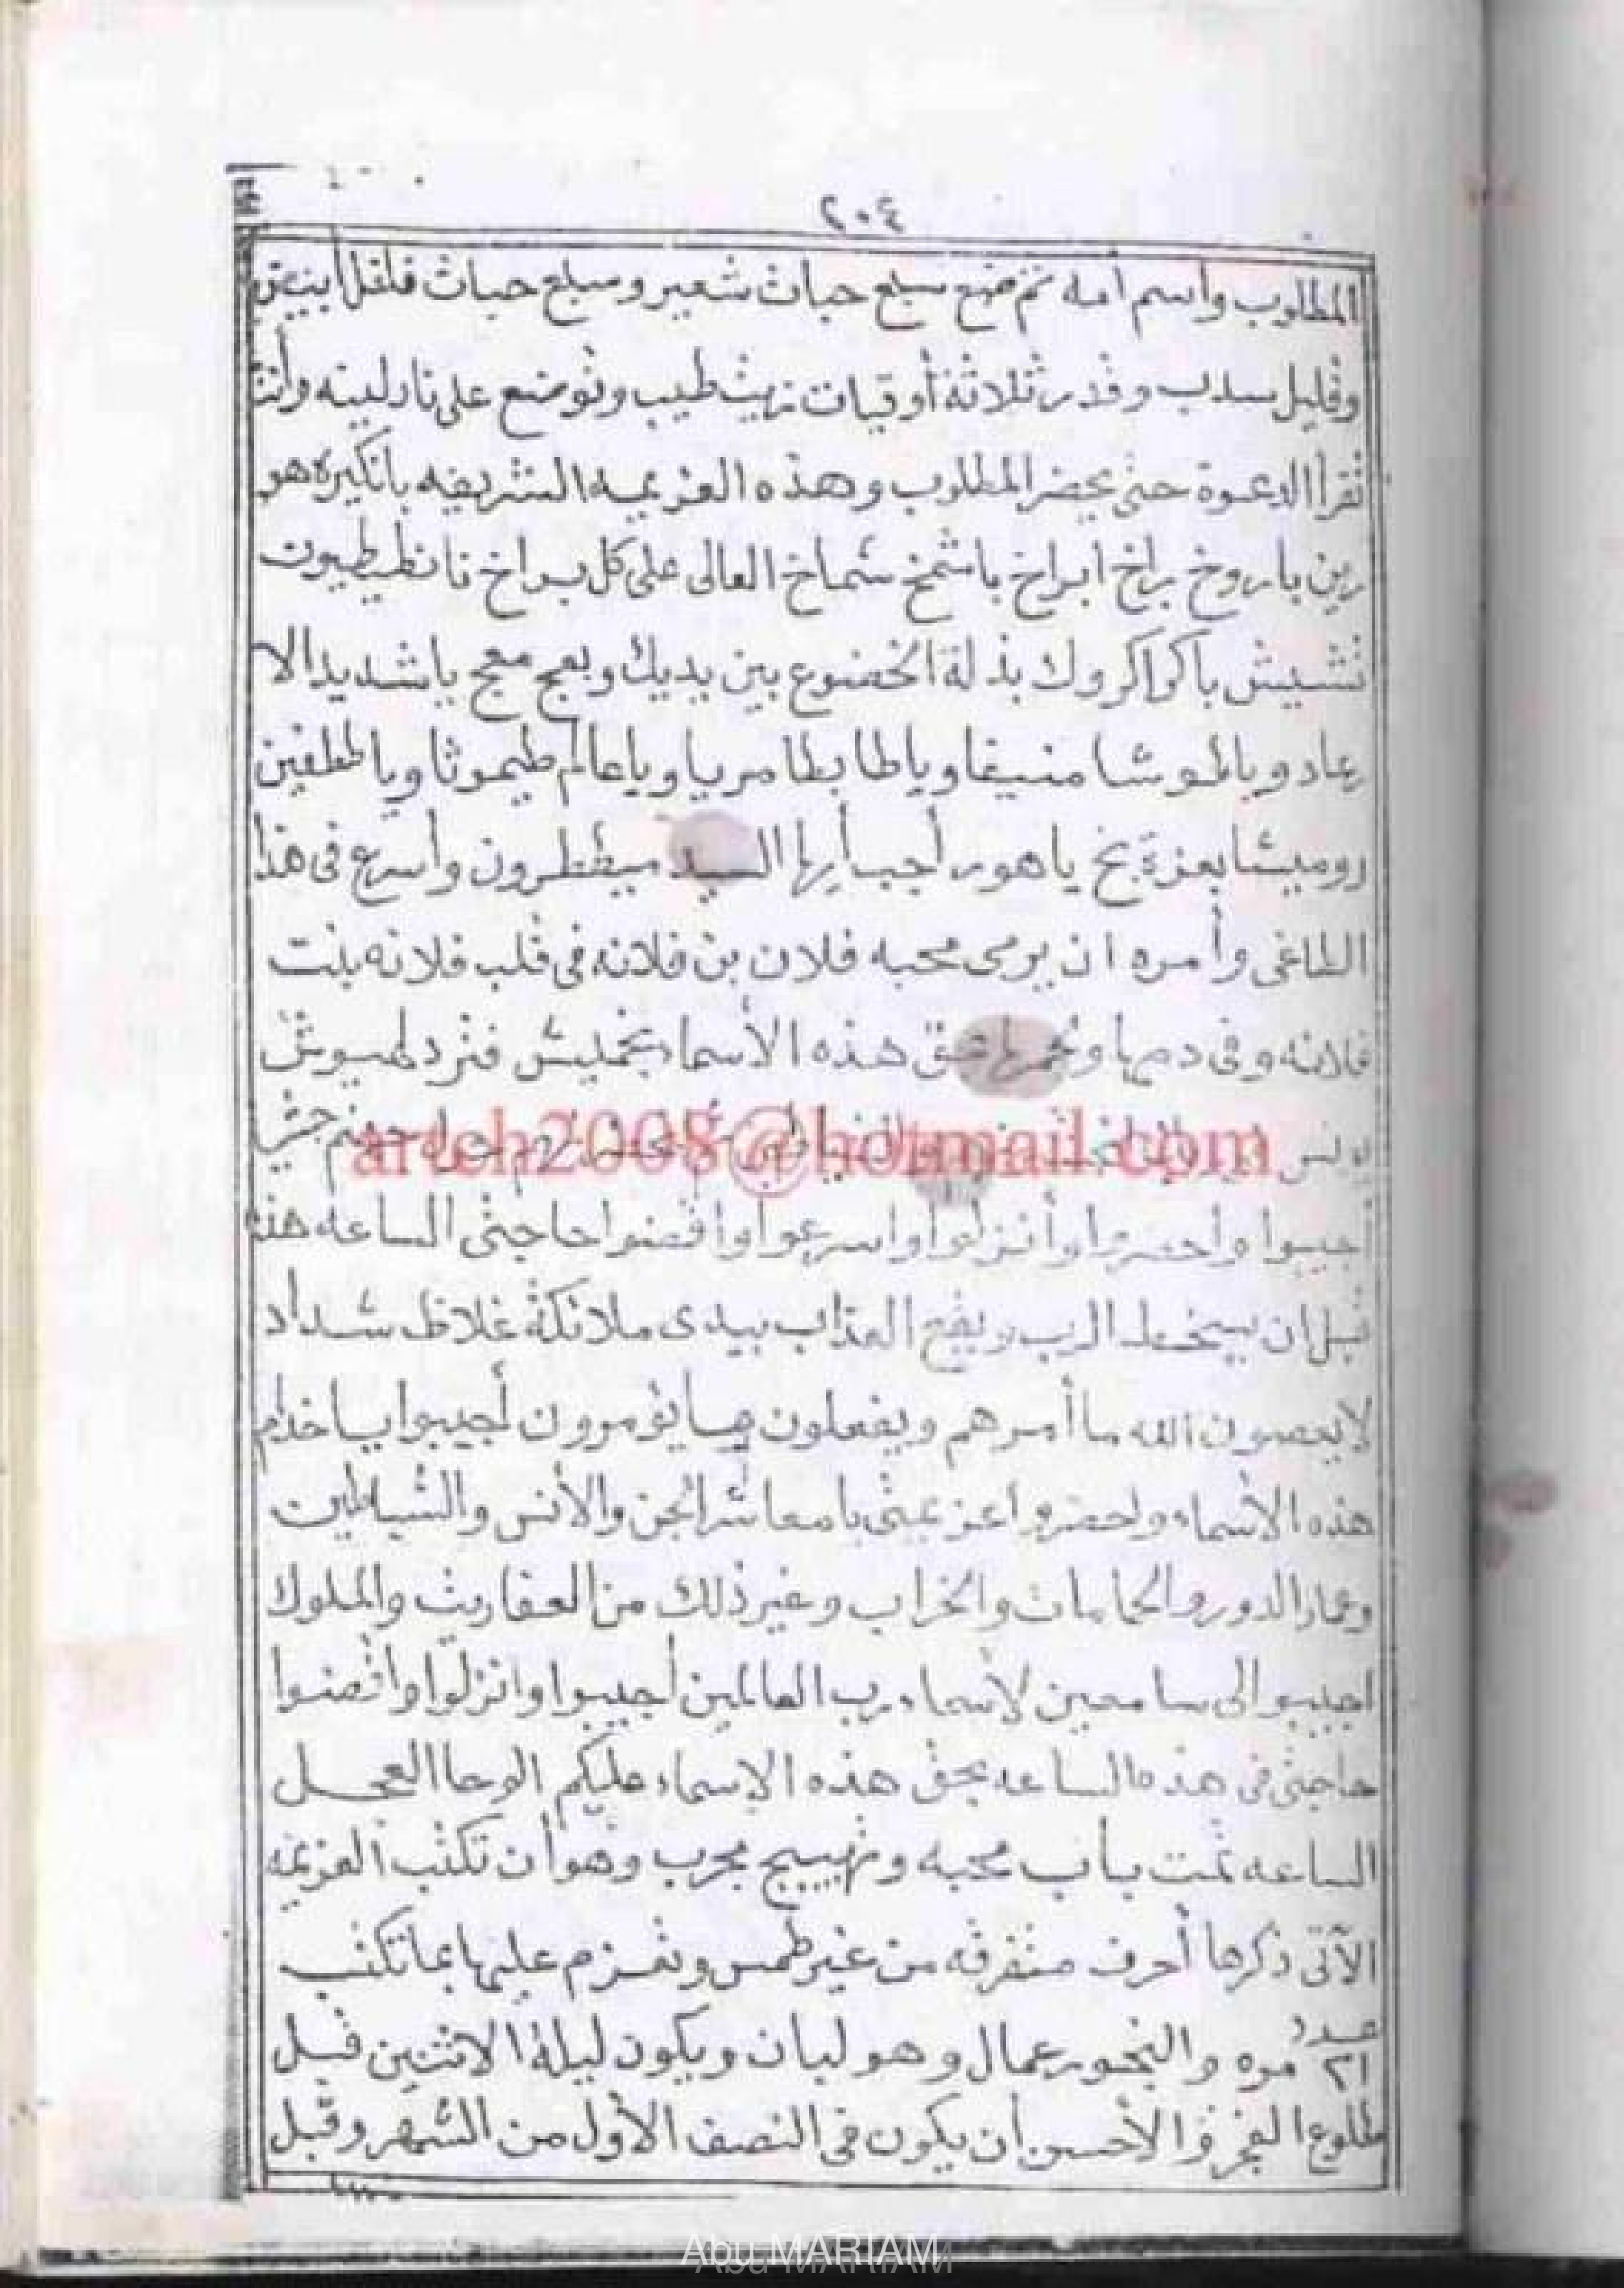 ٢٠٤
المطلوب واسم امه ثم ضع سبع حبات شعير وسبع حبات فلفل أبيض
وقليل سدب وقدر ثلاثة أوقيات زيت طيب وتوضع على نار لينه وأنت
تقرأ الدعوة حتى يحضر المطلوب وهذه العزيمه الشريفه يا نكيره هو
رين يا روخ براخ ابراخ يا شمخ شماخ العالى على كل براخ
نشيش يا كراكروك بذلة الخضوع بين يديك وبعج معج يا شديد الا
رعاد و شا منسيغا ويا طا بطا مريا ويا عالم طيموثا ويا
روميشا بعزة بخ يا هور أجب أيها السيد ميططرون وأسرع فى هذا
الطاغى وأمره ان يرمى محبه فلان بن فلانه فى قلب فلانه بنت
فلانه وفى دمها هذه الأسماء
أجيبوا واحضروا وأنزلوا واسرعوا واقضوا حاجتى الساعه هذه
قبل ان يسخط الرب ويفتح العذاب بيدى ملائكة غلاظ شداد
لا يعصون الله ما أمرهم ويفعلون ما يؤمرون أجيبوا يا خدام
هذه الاسماء واحضروا عزعتى يا معاشر الجن والأنس والشياطين
وعمار الدور والحمامات والخراب وغير ذلك من العفاريت والملوك
اجيبوا لى سامعين لأسماء رب العالمين أجيبوا وانزلوا واقضوا
حاجتى فى هذه الساعه بحق هذه الاسماء عليكم الوحا العجل
الساعه تمت باب محبه وتهييج مجرب وهو أن تكتب العزيمه
الآتى ذكرها أحرف متفرقه من غير طمس وتعزم عليها بما تكتب
عدد
٢١ مره والبخور عمال وهو لبان ويكون ليلة الاثنين قبل
طلوع الفجر والأحسن أن يكون فى النصف الأول من الشهر وقبل
artch2008@hotmail.com
Abu MARIAM